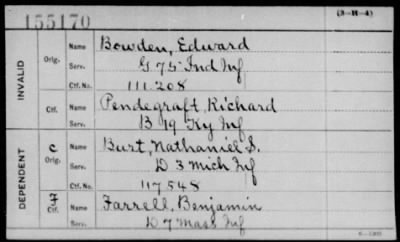 155170
(3-H-4)
INVALID
Orig.
Name Bowden, Edward
Serv. G 75 Ind Inf
Ctf. No. 111.208
Ctf.
Name Pendegraft, Richard
Serv. B 19 Ky Inf
DEPENDENT
C
Orig.
Name Burt, Nathaniel S.
Serv. D 3 Mich Inf
Ctf. No. 117548
Ctf.
Name Farrell, Benjamin
Serv. D 7 Mass Inf